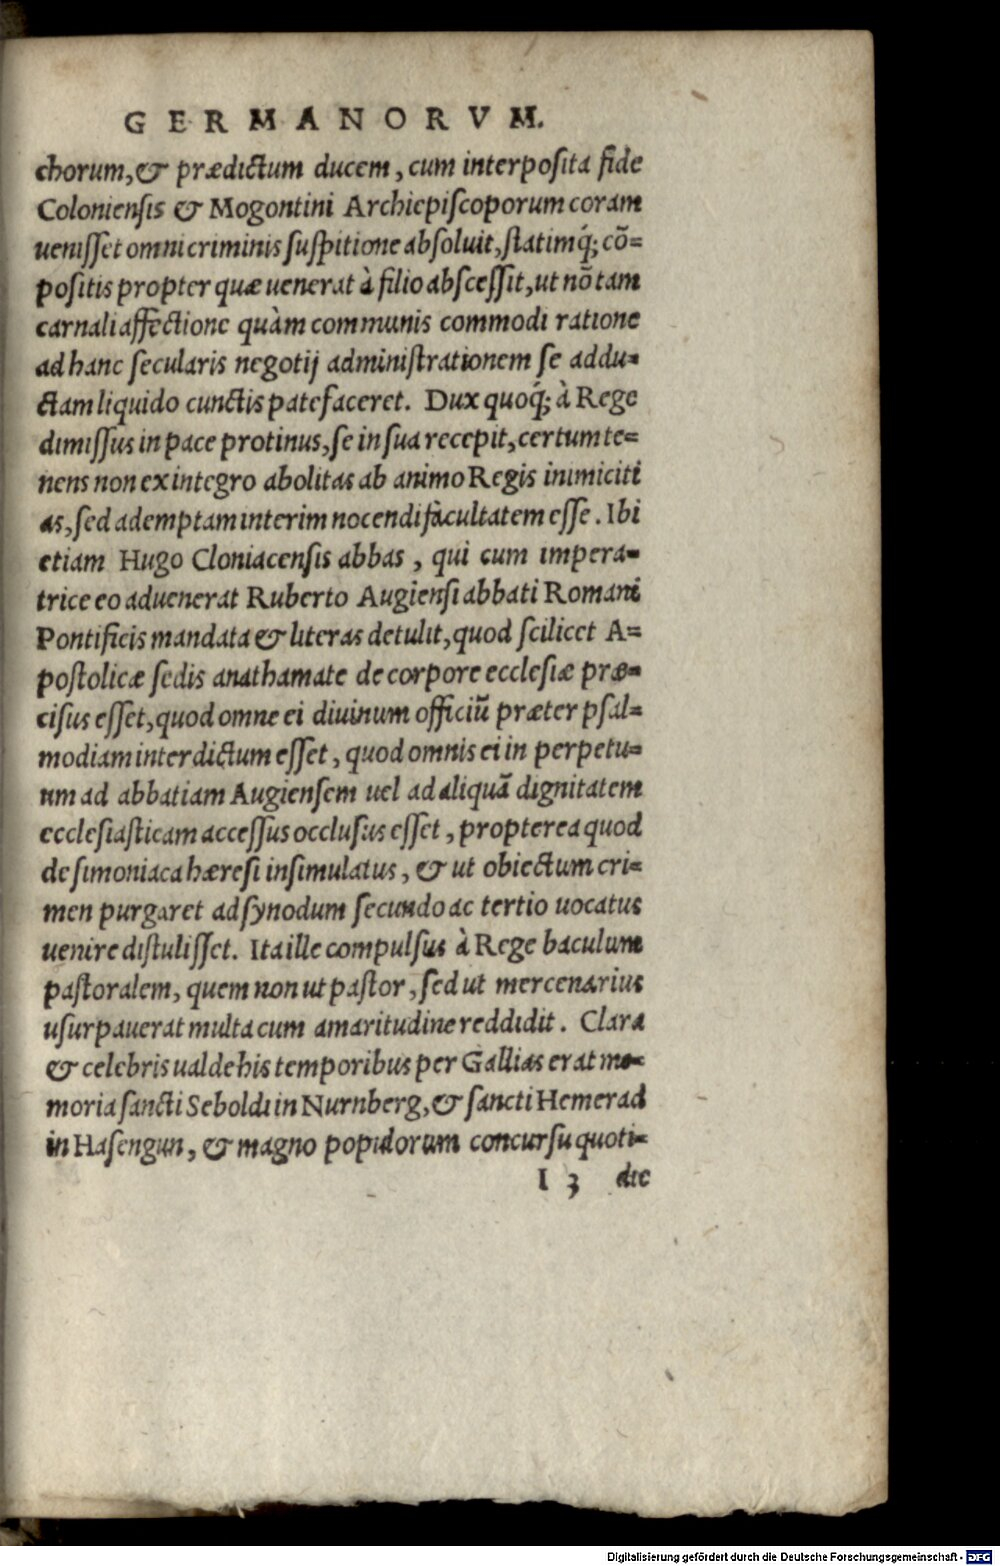 GERMANORVM.
chorum, & prædictum ducem, cum interposita fide
Coloniensis & Mogontini Archiepiscoporum coram
uenisset omni criminis suspitione absoluit, statimq́; cō=
positis propter quæ uenerat à filio abscessit, ut nō tam
carnali affectione quàm communis commodi ratione
ad hanc secularis negotij administrationem se addu=
ctam liquido cunctis patefaceret. Dux quoq́; à Rege
dimissus in pace protinus, se in sua recepit, certum te=
nens non ex integro abolitas ab animo Regis inimiciti
as, sed ademptam interim nocendi facultatem esse. Ibi
etiam Hugo Cloniacensis abbas, qui cum impera=
trice eo aduenerat Ruberto Augiensi abbati Romani
Pontificis mandata & literas detulit, quod scilicet A=
postolicæ sedis anathamate de corpore ecclesiæ præ=
cisus esset, quod omne ei diuinum officiū præter psal=
modiam interdictum esset, quod omnis ei in perpetu=
um ad abbatiam Augiensem uel ad aliquā dignitatem
ecclesiasticam accessus occlusus esset, propterea quod
de simoniaca hæresi insimulatus, & ut obiectum cri=
men purgaret ad synodum secundo ac tertio uocatus
uenire distulisset. Ita ille compulsus à Rege baculum
pastoralem, quem non ut pastor, sed ut mercenarius
usurpauerat multa cum amaritudine reddidit. Clara
& celebris ualde his temporibus per Gallias erat me=
moria sancti Seboldi in Nurnberg, & sancti Hemerad
in Hasengun, & magno populorum concursu quoti=
I 3 die
Digitalisierung gefördert durch die Deutsche Forschungsgemeinschaft - DFG